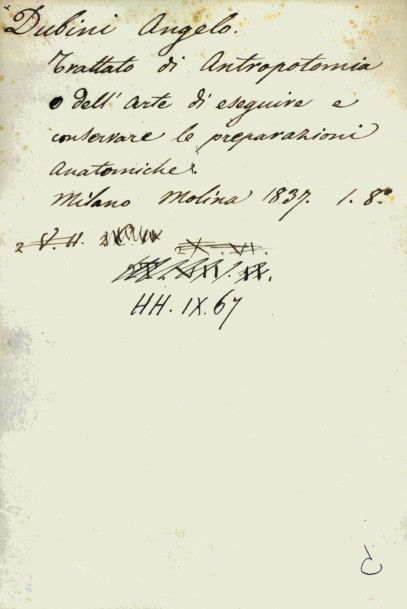 Dubini Angelo.
Trattato di Antropotomia
o dell' arte di eseguire e
conservare le preparazioni
Anatomiche.
Milano Molina 1837. 1. 8°
2 V. II.
HH. IX. 67